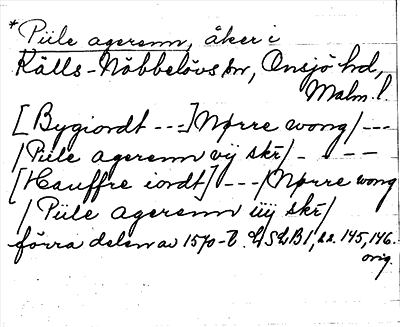 *Piile agerenn, åker i
Källs-Nöbbelövs sn, Onsjö hd,
Malm. l.
[Bygiordt ---] Nørre wong/ ---
/Piile agerenn vÿ skr/ - - - -
[Hauffre iordt] ---/Nørre wong
/Piile agerenn iiÿ skr/
förra delen av 1570-t. LSLB1, ss. 145, 146.
orig.